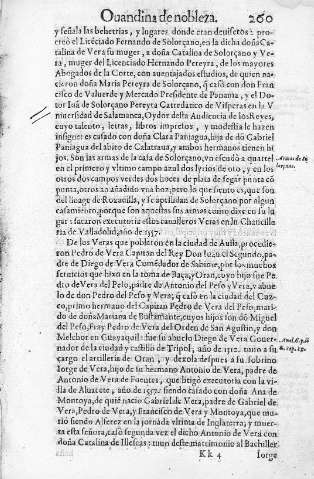 Ouandina de nobleza. 260
y señala las behetrias, y lugares donde eran deuiseros: procreò
el Liceciado Fernando de Solorçano, en la dicha doña Catalina
de Vera su muger, a doña Catalina de Solorçano y Vera,
muger del Licenciado Hernando Pereyra, de los mayores
Abogados de la Corte, con auentajados estudios, de quien nacieron
doña Maria Pereyra de Solorçano, q̃ casò con don Francisco
de Valuerde y Mercado Presidente de Panama, y el Dotor
Iuã de Solorçano Pereyra Catredatico de Visperas en la Vniuersidad
de Salamanca, Oydor desta Audiencia de los Reyes,
cuyo talento, letras, libros impressos, y modestia le hazen
insigne: es casado con doña Clara Paniagua, hija de dõ Gabriel
Paniagua del abito de Calatraua, y ambos hermanos tienen hijos.
Son las armas de la casa de Solorçano, vn escudo a quartel
en el primero y vltimo campo azul dos lyrios de oro, y en los
otros dos campos verdes dos hoces de plata de segar punta cõ
punta, otros añadido vna hoz, pero lo que siento es, que son
del linage de y se apellidan de Solorçano por algun
casamiento, porque son aquestas sus armas como dixe en su lugar:
sacaron executoria estos caualleros Veras en la Chancilleria
de Valladolid, año de 1557.
De los Veras que poblaron en la ciudad de Auila, procedieron
Pedro de Vera Capitan del Rey Don Iuan el Segundo, padre
de Diego de Vera Comẽdador de Sabiote, que por los muchos
seruicios que hizo en la toma de Baça, y Oran, cuyo hijo fue Pedro
de Vera del Peso, padre de Antonio del Peso y Vera, y abuelo
de don Pedro del Peso y Vera; q̃ casò en la ciudad del Cuzco,
primo hermano del Capitan Pedro de Vera del Peso, marido
de doña Mariana de Bustamante, cuyos hijos son dõ Miguel
del Peso, Fray Pedro de Vera del Orden de San Agustin, y don
Melchor en Guayaquil: fue su abuelo Diego de Vera Gouernador
de la ciudad y castillo de Tripol, año de 1512. tuuo a su
cargo el artilleria de Oran, y dexola despues a su sobrino
Iorge de Vera, hijo de su hermano Antonio de Vera, padre de
Antonio de Vera de Fuentes, que litigò executoria con la villa
de Albacete, año de 1572. siendo casado con doña Ana de
Montoya, de quiẽ naciò Gabriel de Vera, padre de Gabriel de
Vera, Pedro de Vera, y Francisco de Vera y Montoya, que murio
siendo Alferez en la jornada vltima de Inglaterra, y muerta
esta señora, casò segunda vez el dicho Antonio de Vera con
doña Catalina de Illescas: tuuo deste matrimonio al Bachiller
Kk 4 Iorge